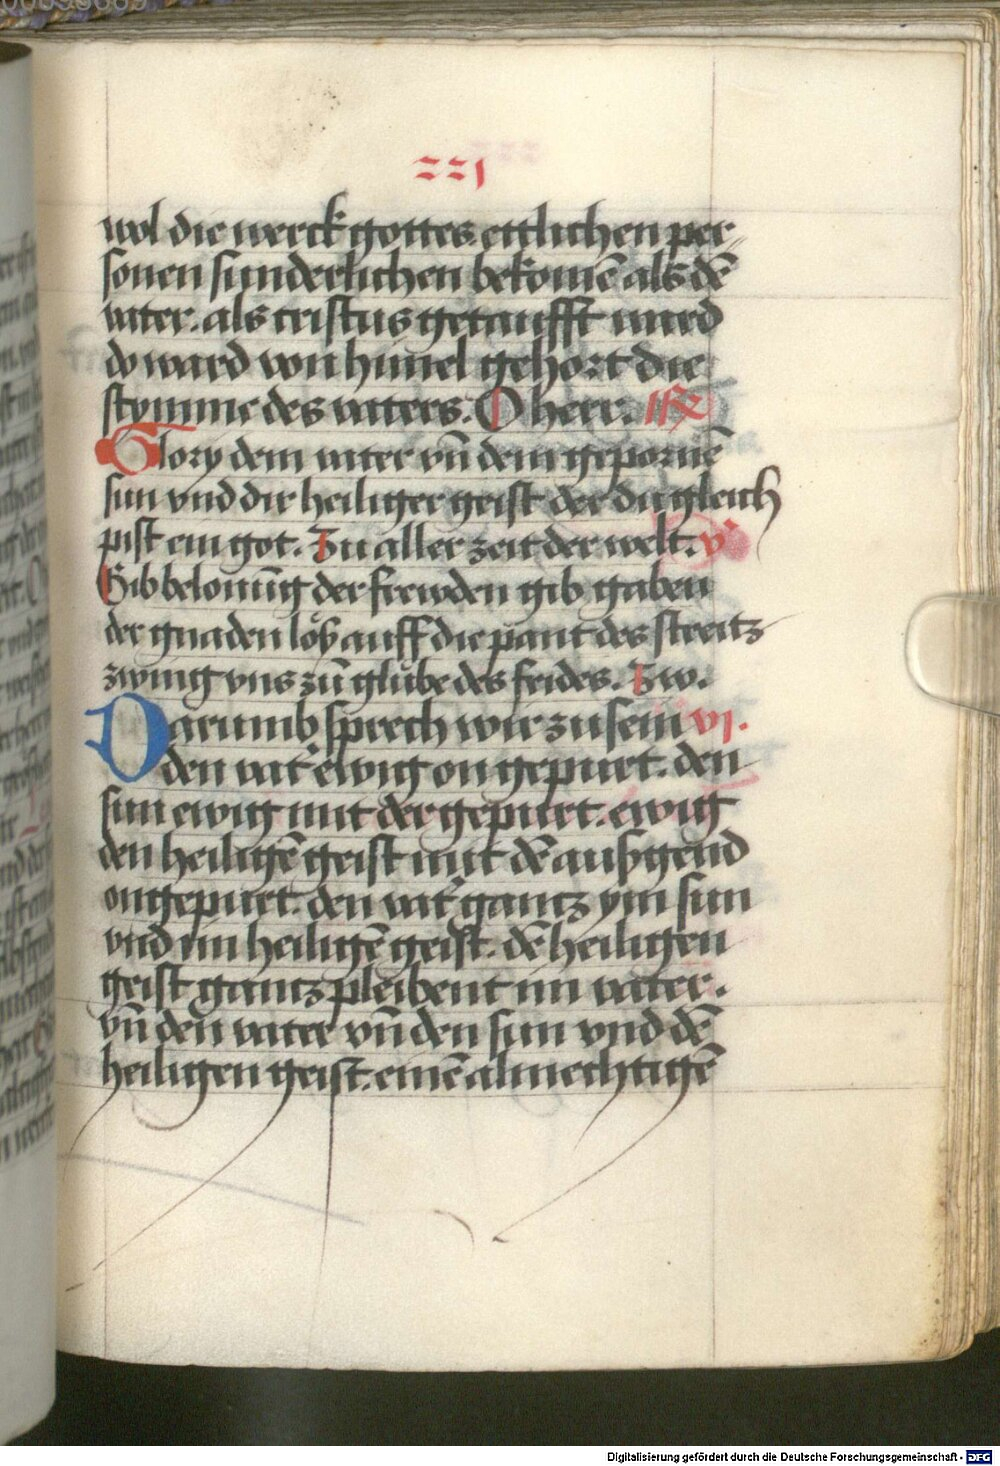 221
wol die werck gottes ettlichen per-
sonen sunderlichen bekomē als dē
vater. als cristus getaufft ward
do ward von himel gehört die
stymme des vaters. O herr.
Glory dem vater vn̄ dem gepornē
sun vnd dir heiliger geist der du gleich
pist ein got. Zu aller zeit der welt. v᷎
Gib belonūg der frewden gib gaben
der gnaden löß auff die pant des streitz
zwing vns zū glube des frides. Zw.
Darumb sprech wir zu sein vı.
den vat᷎ ewig on gepurt. den
sun ewig mit der gepurt. ewig
den heiligē geist mit dē außgend
on gepurt. den vat᷎ gantz ym sun
vnd im heiligē geist. dē heiligen
geist gantz pleibent im vater.
vn̄ den vater vn̄ den sun vnd dē
heiligen geist. einē almechtigē
Digitalisierung gefördert durch die Deutsche Forschungsgemeinschaft - DFG